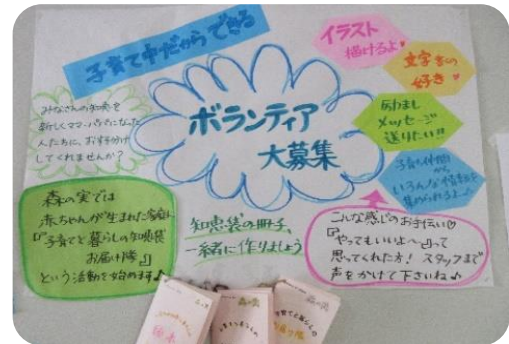 子育て中だからできる
ボランティア
大募集
イラスト
描けるよ♥
文字書くの
好き♥
励まし
メッセージ
送りたい!!
子育て仲間から
いろんな情報を
集められるよ♪
みなさんの知恵を
新しくママ・パパになった
人たちに、おすそ分け
してくれませんか?
森の実では
赤ちゃんが生まれた家庭に
『子育てと暮らしの知恵袋
お届け隊』
という活動を始めます♪
知恵袋の冊子、
一緒に作りましょう
こんな感じのお手伝い♡
『やってもいいよ〜』って
思ってくれた方! スタッフまで
声をかけて下さいね♪